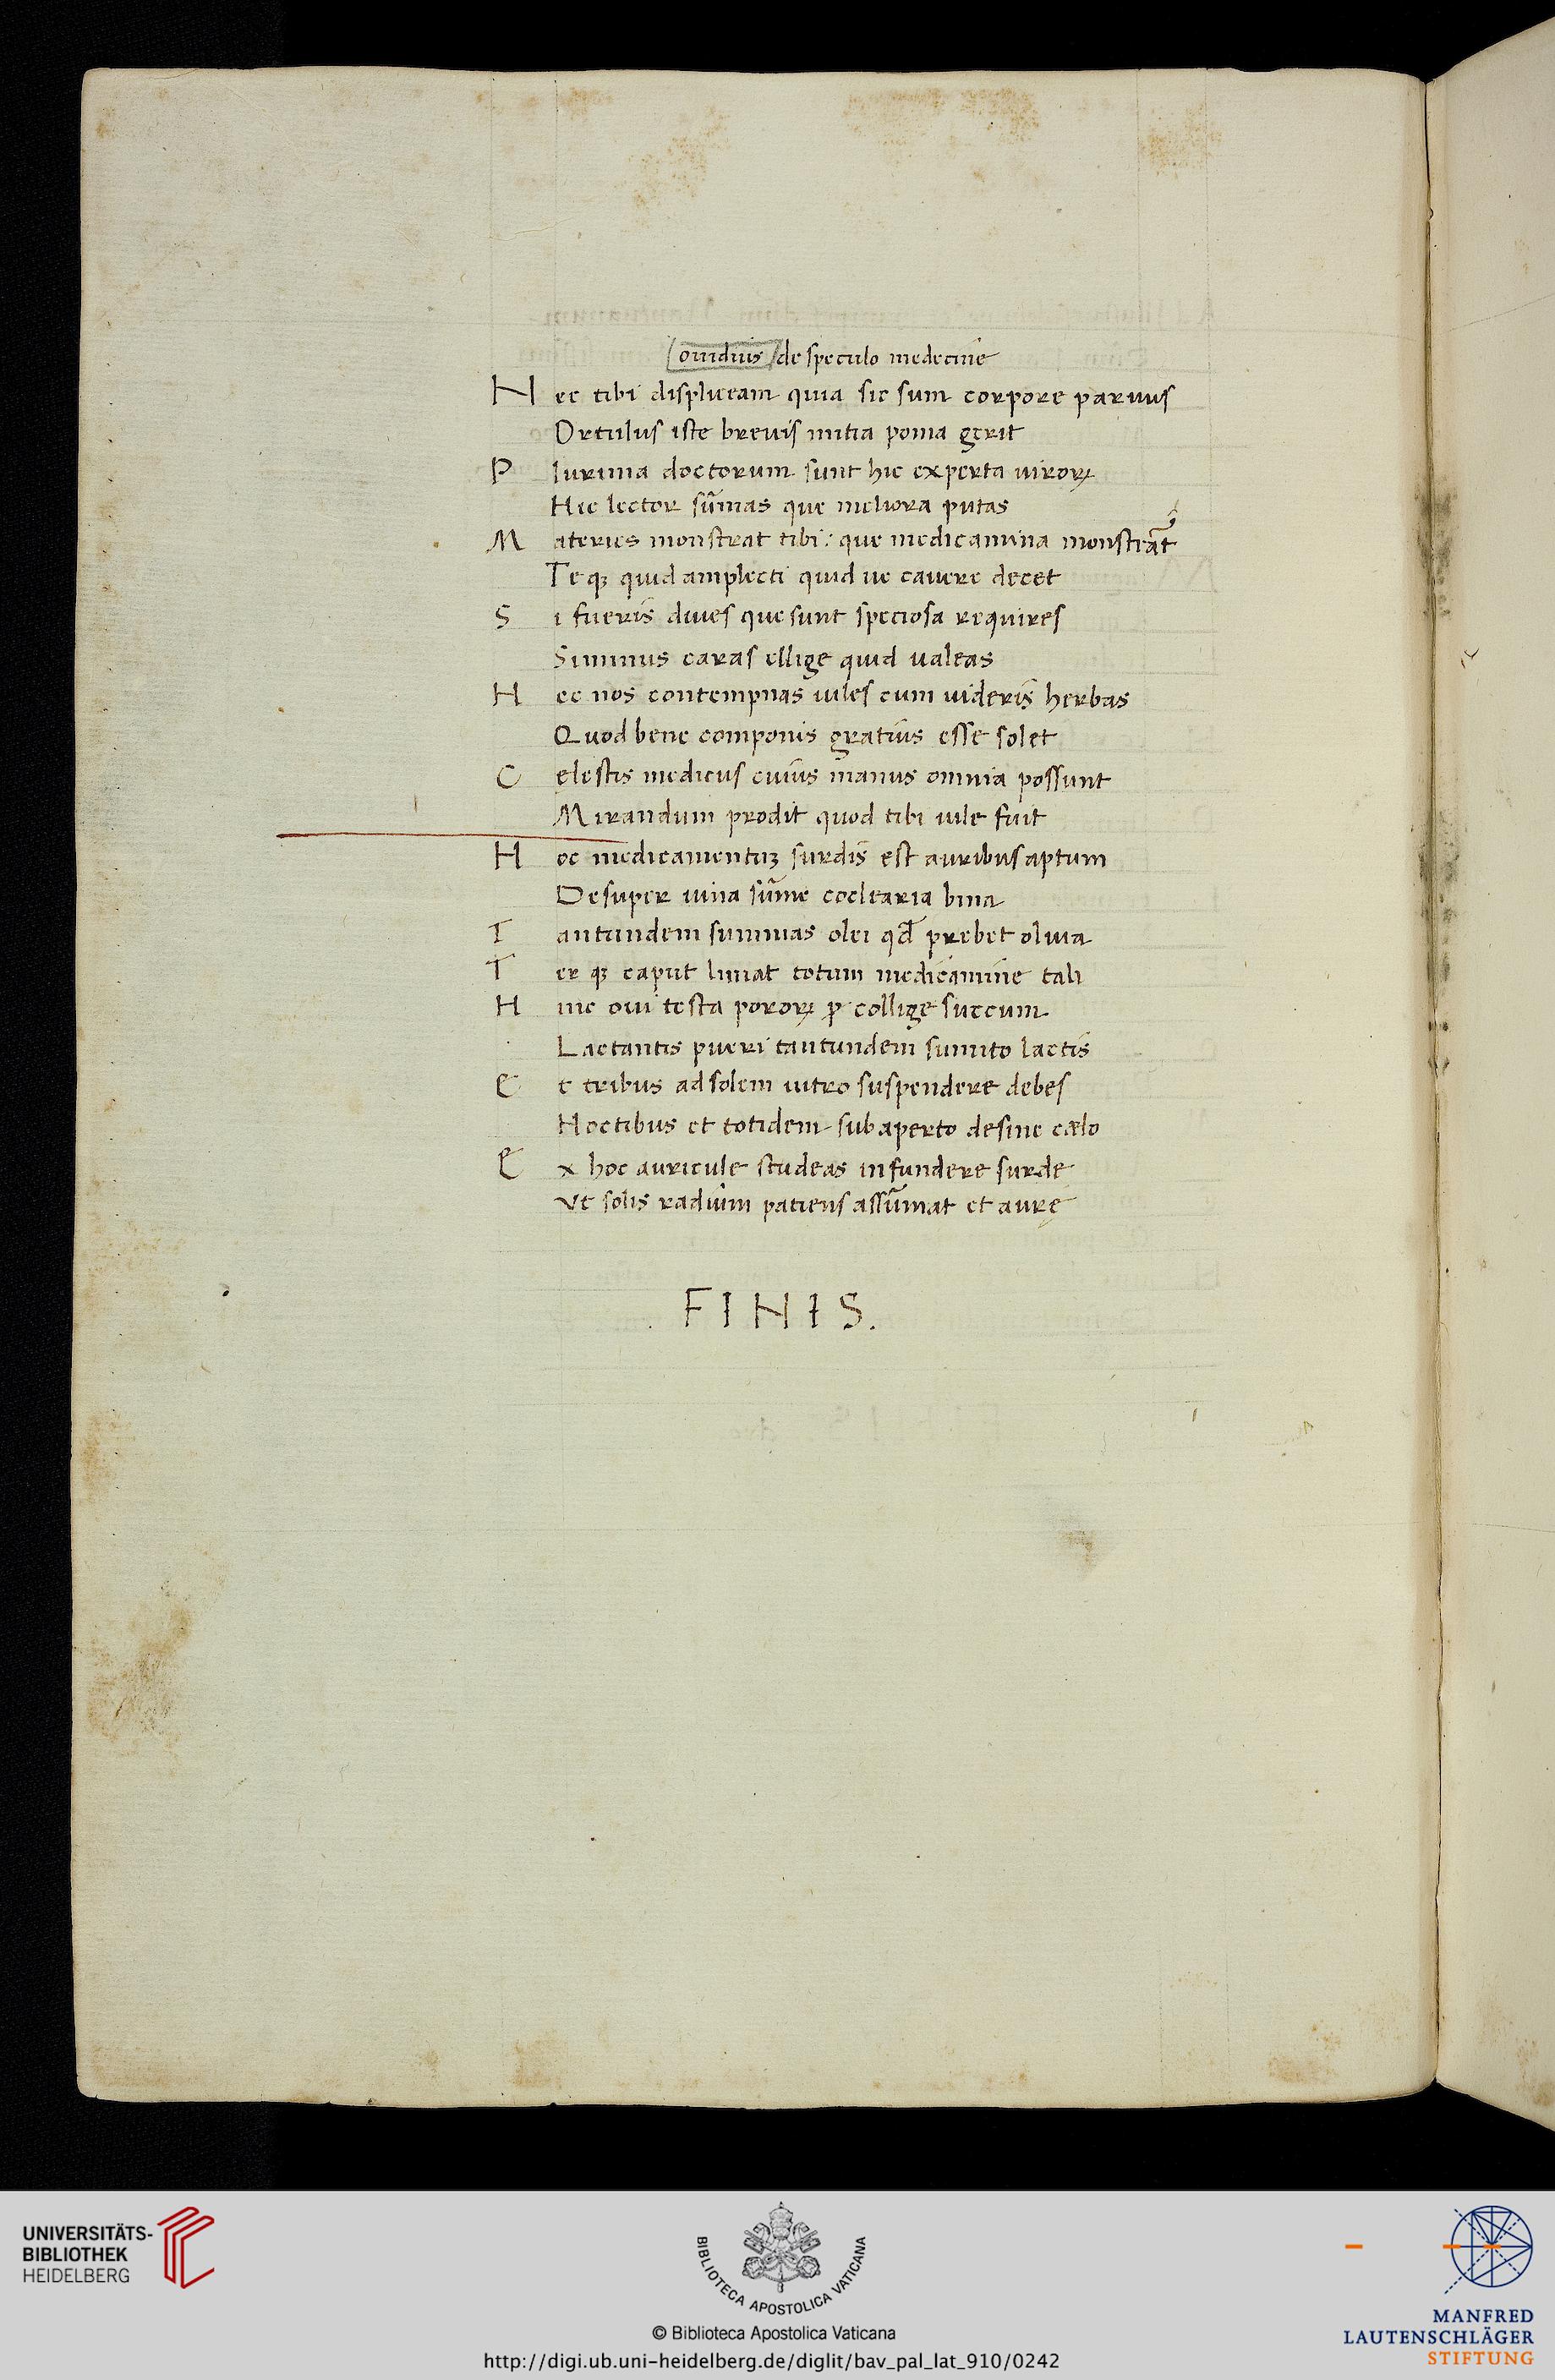 ouidius de speculo medecine
Nec tibi displiceam quia sic sum corpore paruus
Ortulus iste breuis mitia poma gerit
Plurima doctorum sunt hic experta uiroꝝ
Hic lector sũmas que meliora putas
Materies monstrat tibi: que medicamina monstrãt
Te qꝫ quid amplecti quid ue cauere decet
Si fueris diues que sunt speciosa requires
Sinimus caras ellige quid ualeas
Hec nos contempnas uiles cum uideris herbas
Quod bene componis gratius esse solet
Celestis medicus cuius manus omnia possunt
Mirandum prodit quod tibi uile fuit
Hoc medicamentuꝫ surdis est auribus aptum
Desuper iuina sũme coclearia bina
Tantundem summas olei qđ prebet oliua
Ter qꝫ caput liniat totum medicamine tali
Hinc oui testa pororꝝ ꝓ collige succum
Lactantis pueri tantundem sumito lactis
Et tribus ad solem uitro suspendere debes
Noctibus et totidem sub aperto desine cælo
Ex hoc auricule studeas infundere surde
Vt solis radium patiens assũmat et aurę
FINIS.
UNIVERSITÄTS-
BIBLIOTHEK
HEIDELBERG
BIBLIOTECA APOSTOLICA VATICANA
© Biblioteca Apostolica Vaticana
http://digi.ub.uni-heidelberg.de/diglit/bav_pal_lat_910/0242
MANFRED
LAUTENSCHLÄGER
STIFTUNG